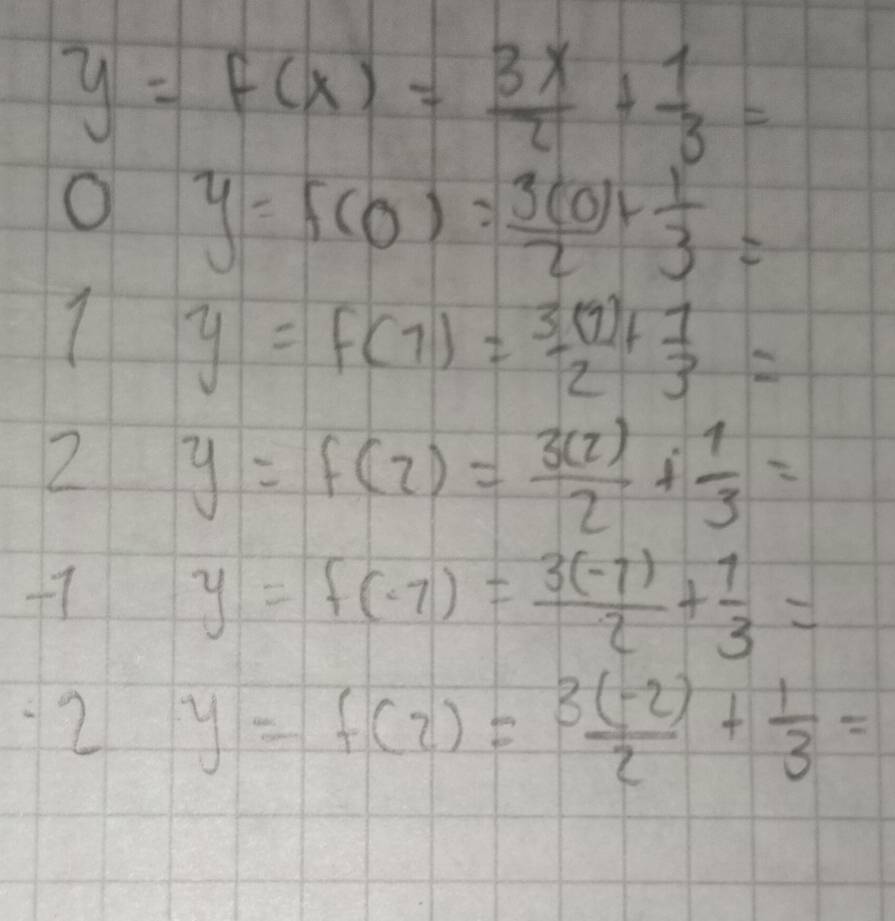 y = f(x) = 3x/2 + 1/3 =
0 y = f(0) = 3(0)/2 + 1/3 =
1 y = f(1) = 3(1)/2 + 1/3 =
2 y = f(2) = 3(2)/2 + 1/3 =
-1 y = f(-1) = 3(-1)/2 + 1/3 =
-2 y = f(2) = 3(-2)/2 + 1/3 =